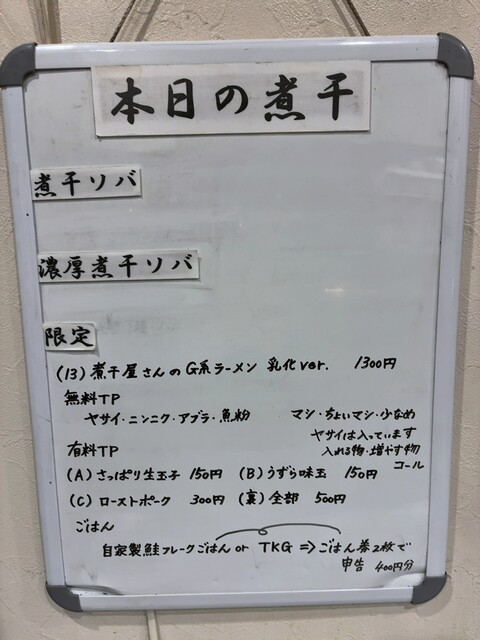 本日の煮干
煮干ソバ
濃厚煮干ソバ
限定
(13) 煮干屋さんのG系ラーメン 乳化ver. 1300円
無料TP
ヤサイ・ニンニク・アブラ・魚粉 マシ・ちょいマシ・少なめ
ヤサイは入っています
有料TP 入れる物・増やす物
コール
(A) さっぱり生玉子 150円 (B) うずら味玉 150円
(C) ローストポーク 300円 (裏) 全部 500円
ごはん
自家製鮭フレークごはん or TKG ⇒ ごはん券2枚で
申告 400円分